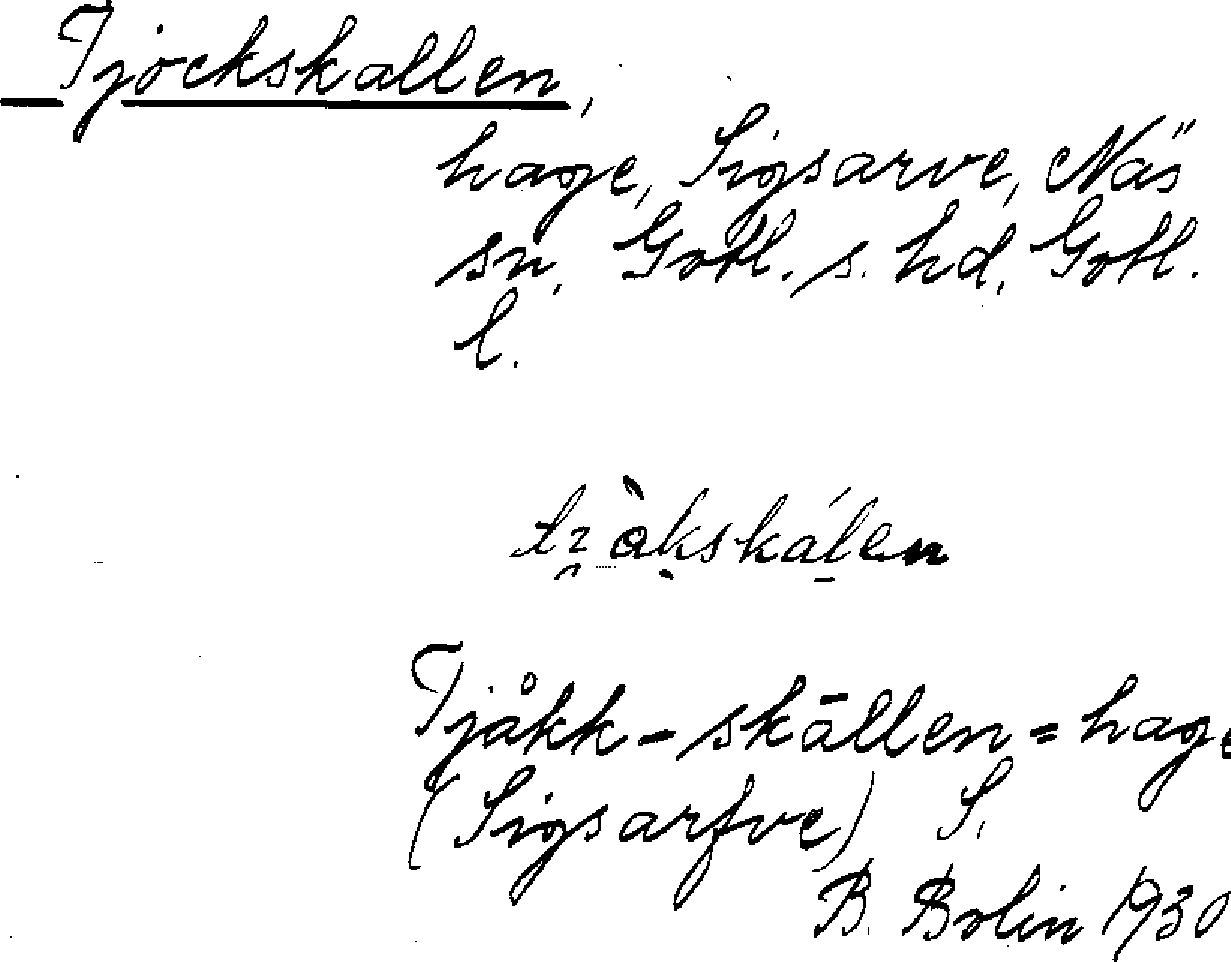 Tjockskallen,
hage, Sigsarve, Näs
sn, Gotl. s. hd, Gotl.
l.
Tjåkk-skāllen = hage
(Sigsarfve) S.
B. Bolin 1930